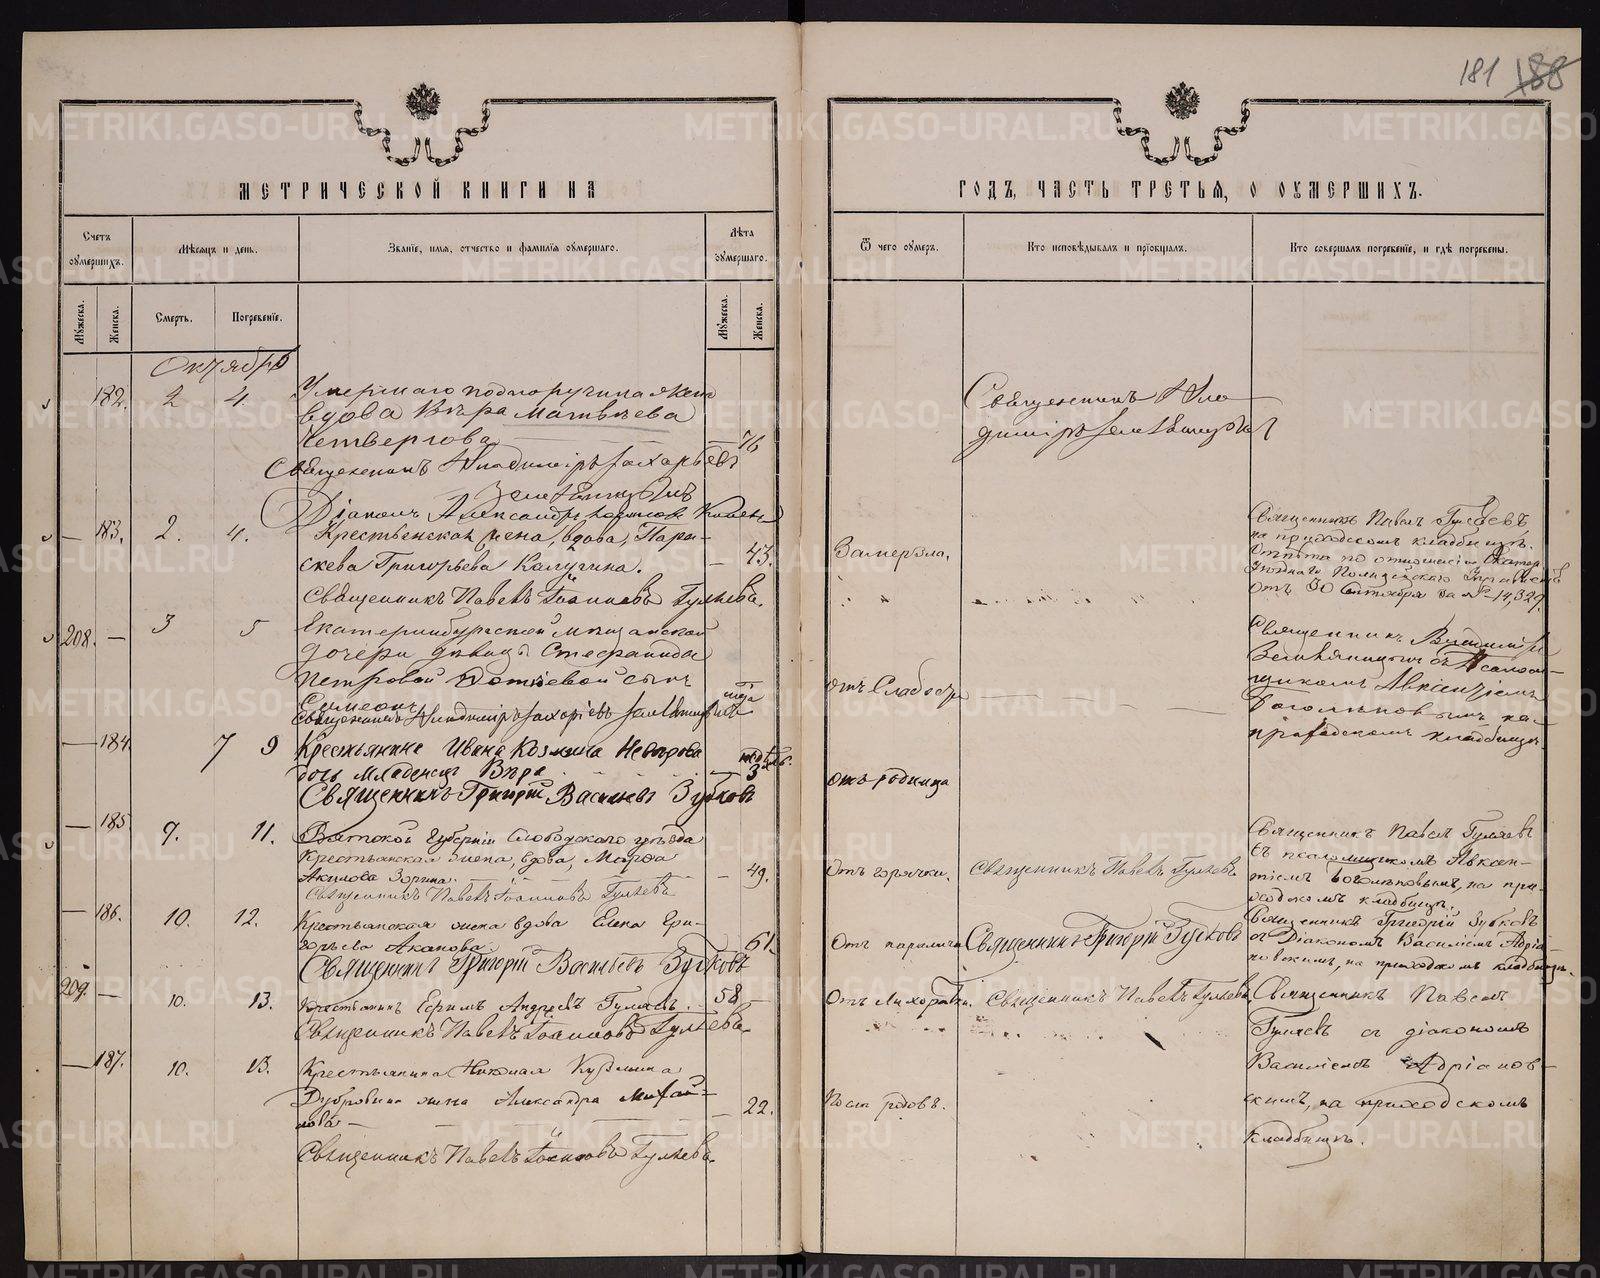 181 188
МЕТРИЧЕСКОЙ КНИГИ НА
ГОДЪ, ЧАСТЬ ТРЕТЬЯ, О ОУМЕРШИХЪ.
Счетъ оумершихъ.
Мѣсяцъ и день.
Званіе, имя, отчество и фамилія оумершаго.
Лѣта оумершаго.
Ѿ чего оумеръ.
Кто исповѣдывалъ и пріобщалъ.
Кто совершалъ погребеніе, и гдѣ погребены.
Мужеска.
Женска.
Смерть.
Погребеніе.
Мужеска.
Женска.
Октябрь
182. 2 4
Умершаго подпоручика жена
вдова Вѣра Матвѣева
Четвергова 76
Священникъ Владиміръ Захарьевъ
Священникъ Вла
диміръ
Діаконъ Александръ
183. 2. 4. Крестьянская жена, вдова, Пара-
скева Григорьева Калугина. 43.
Священникъ Павелъ Іоанновъ Гуляевъ.
Замерзла.
Священникъ Павелъ Гуляевъ
на приходскомъ кладбищѣ.
Отпѣта по отношенію Екатер.
Уѣзднаго Полицейскаго Управленія
отъ 30 Сентября за № 14,329.
208. 3 5 Екатеринбургской мѣщанской
дочери дѣвицы Стефаниды
Петровой сынъ
Симеонъ
Священникъ Владиміръ Захаріевъ
отъ Слабости
Священникъ Владиміръ
Великанцевъ съ Псалом-
щикомъ Авксентіемъ
Боголѣповымъ на
приходскомъ кладбищѣ.
184. 7 9 Крестьянина Ивана Козмина
дочь младенецъ Вѣра 3
Священникъ Григорій Васильевъ Зубковъ
отъ родимца
185. 9. 11. Вятской Губерніи Слободскаго уѣзда
Крестьянская жена, вдова, Марфа
Акилова Зорина. 49.
Священникъ Павелъ Іоанновъ Гуляевъ
Отъ горячки.
Священникъ Павелъ Гуляевъ
Священникъ Павелъ Гуляевъ
съ псаломщикомъ Авксен-
тіемъ Боголѣповымъ, на при-
ходскомъ кладбищѣ.
186. 10. 12. Крестьянская жена вдова Елена Гри-
горьева Аканова. 61.
Священникъ Григорій Васильевъ Зубковъ
Отъ паралича
Священникъ Григорій Зубковъ
Священникъ Григорій Зубковъ
съ Діакономъ Василіемъ Адріа-
новскимъ, на приходскомъ кладбищѣ.
209. 10. 13. Крестьянинъ Ефимъ Андреевъ Гуляевъ. 58
Священникъ Павелъ Іоанновъ Гуляевъ.
Отъ лихорадки.
Священникъ Павелъ Гуляевъ.
Священникъ Павелъ
Гуляевъ съ діакономъ
Василіемъ Адріанов-
скимъ, на приходскомъ
кладбищѣ.
187. 10. 13. Крестьянина Николая Кузьмина
Дубровина жена Александра Михай-
лова 22.
Священникъ Павелъ Іоанновъ Гуляевъ.
Посл. родовъ.
METRIKI.GASO-URAL.RU